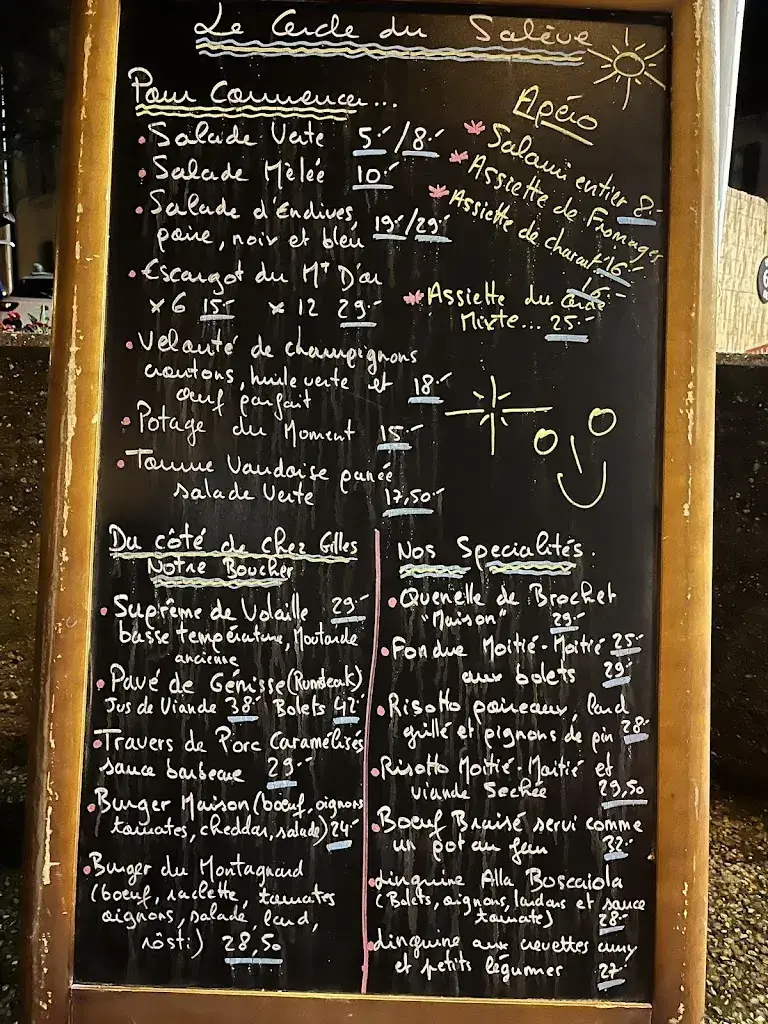 Le Cercle du Salève
Pour Commencer...
• Salade Verte 5.-/8.-
• Salade Mêlée 10.-
• Salade d'Endives,
poire, noix et bleu 19.-/29.-
• Escargot du Mt D'or
x 6 15.- x 12 29.-
• Velouté de champignons
croutons, huile verte et 18.-
œuf parfait
• Potage du Moment 15.-
• Tomme Vaudoise panée
salade Verte 17,50.-
Apéro
* Salami entier 8.-
* Assiette de Fromages
16.-
* Assiette de charcut 16.-
* Assiette du Cercle
Mixte... 25.-
Du côté de chez Gilles
Notre Boucher
• Suprême de Volaille 29.-
basse température, Moutarde
ancienne
• Pavé de Génisse (Rumsteak)
Jus de Viande 38.- Bolets 42.-
• Travers de Porc Caramélisés
sauce barbecue 29.-
• Burger Maison (boeuf, oignons
tomates, cheddar, salade) 24.-
• Burger du Montagnard
(boeuf, raclette, tomates
oignons, salade, lard,
rösti) 28,50
Nos Specialités.
• Quenelle de Brochet
"Maison" 29.-
• Fondue Moitié-Moitié 25.-
aux bolets 29.-
• Risotto poireaux, lard
grillé et pignons de pin 28.-
• Risotto Moitié-Moitié et
viande Sechée 29,50
• Boeuf Braisé servi comme
un pot au feu 32.-
• Linguine Alla Boscaiola
(Bolets, oignons, lardons et sauce
tomate) 28.-
• Linguine aux crevettes curry
et petits légumes 27.-